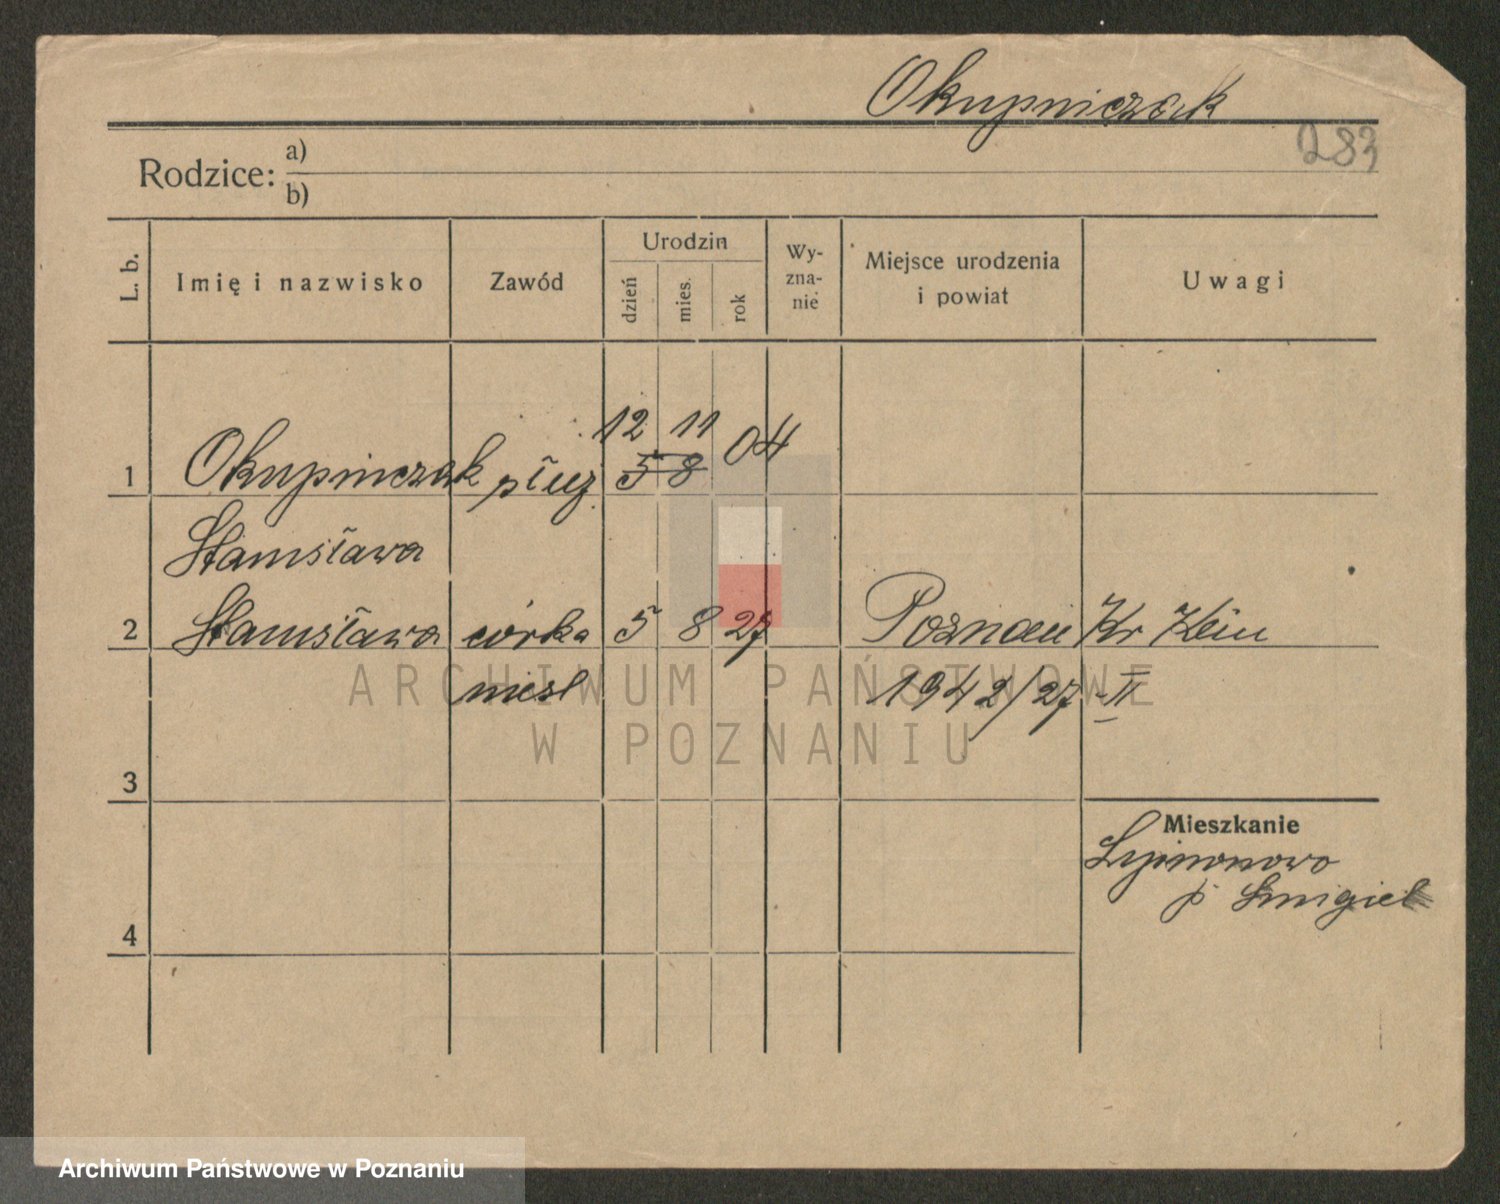 Okupniczak
283
Rodzice: a)
b)
L. b.
Imię i nazwisko
Zawód
Urodzin
dzień
mies.
rok
Wy-
zna-
nie
Miejsce urodzenia
i powiat
Uwagi
12 11 04
1 Okupniczak służ. 5 8
Stanisława
2 Stanisława córka 5 8 27 Poznań Kr
nieśl 1942/27-II
3
Mieszkanie
p Śmigiel
4
ARCHIWUM PAŃSTWOWE
W POZNANIU
Archiwum Państwowe w Poznaniu